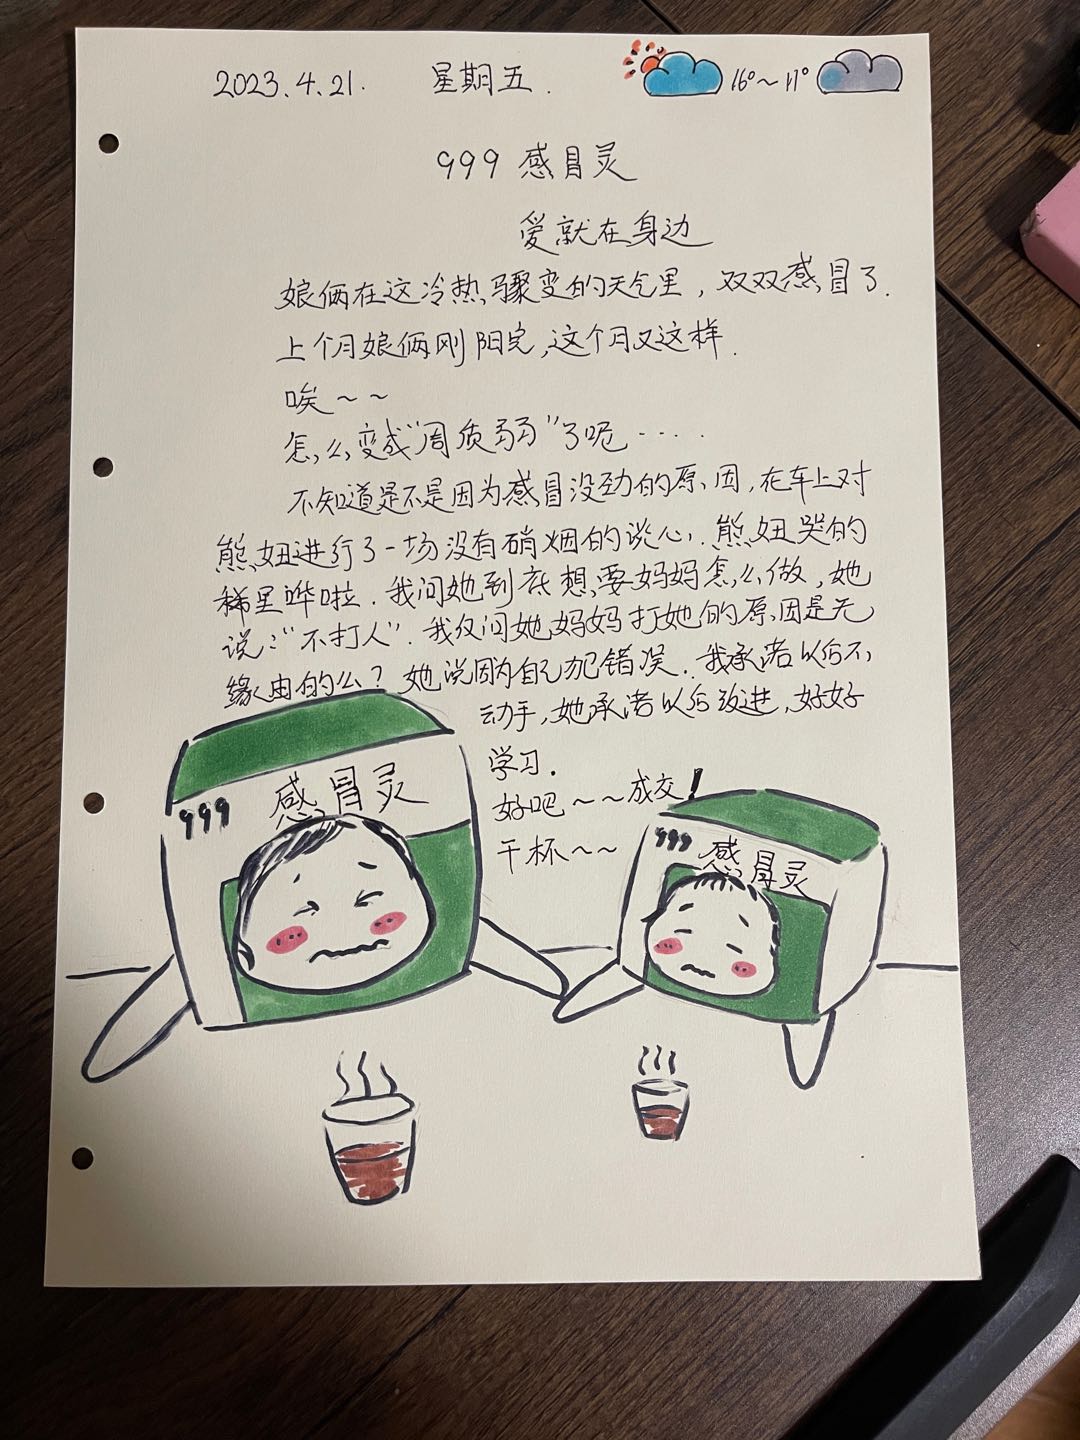 2023.4.21. 星期五.
16°~11°
999 感冒灵
爱就在身边
娘俩在这冷热骤变的天气里，双双感冒了.
上个月娘俩刚阳完，这个月又这样.
唉~~
怎么变成“周质弱”了呢····
不知道是不是因为感冒没劲的原因，在车上对
熊妞进行了一场没有硝烟的谈心. 熊妞哭的
稀里哗啦. 我问她到底想要妈妈怎么做，她
说：“不打人”. 我反问她妈妈打她的原因是无
缘由的么？她说因为自己犯错误. 我承诺以后不
动手，她承诺以后改进，好好
学习.
好吧~~成交！
干杯~~
999 感冒灵
999 感冒灵